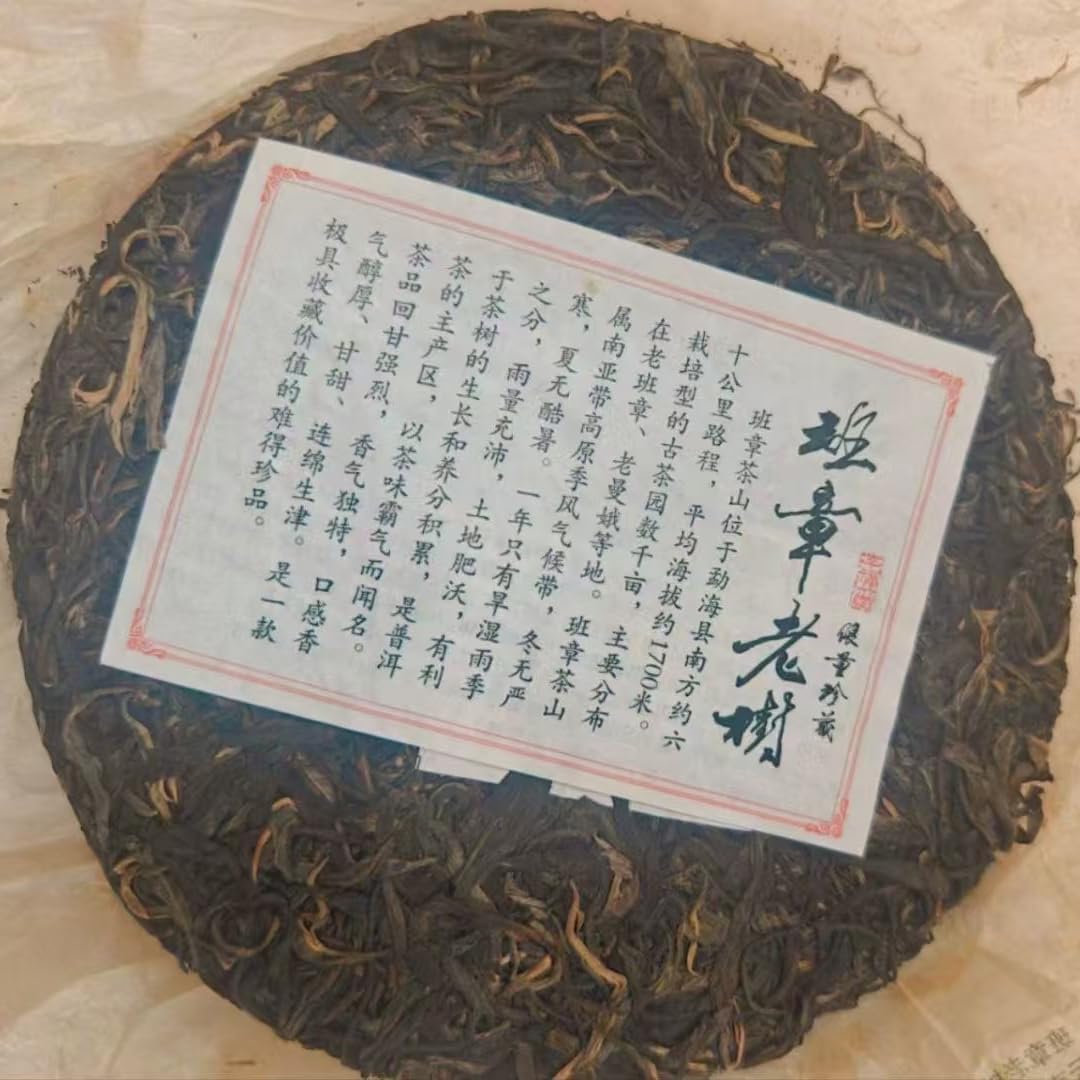 班章老樹
限量珍藏
班章茶山位于勐海县南方约六
十公里路程，平均海拔约1700米。
栽培型的古茶园数千亩，主要分布
在老班章、老曼娥等地。班章茶山
属南亚带高原季风气候带，冬无严
寒，夏无酷暑。一年只有旱湿雨季
之分，雨量充沛，土地肥沃，有利
于茶树的生长和养分积累，是普洱
茶的主产区，以茶味霸气而闻名。
茶品回甘强烈，香气独特，口感香
气醇厚、甘甜、连绵生津。是一款
极具收藏价值的难得珍品。